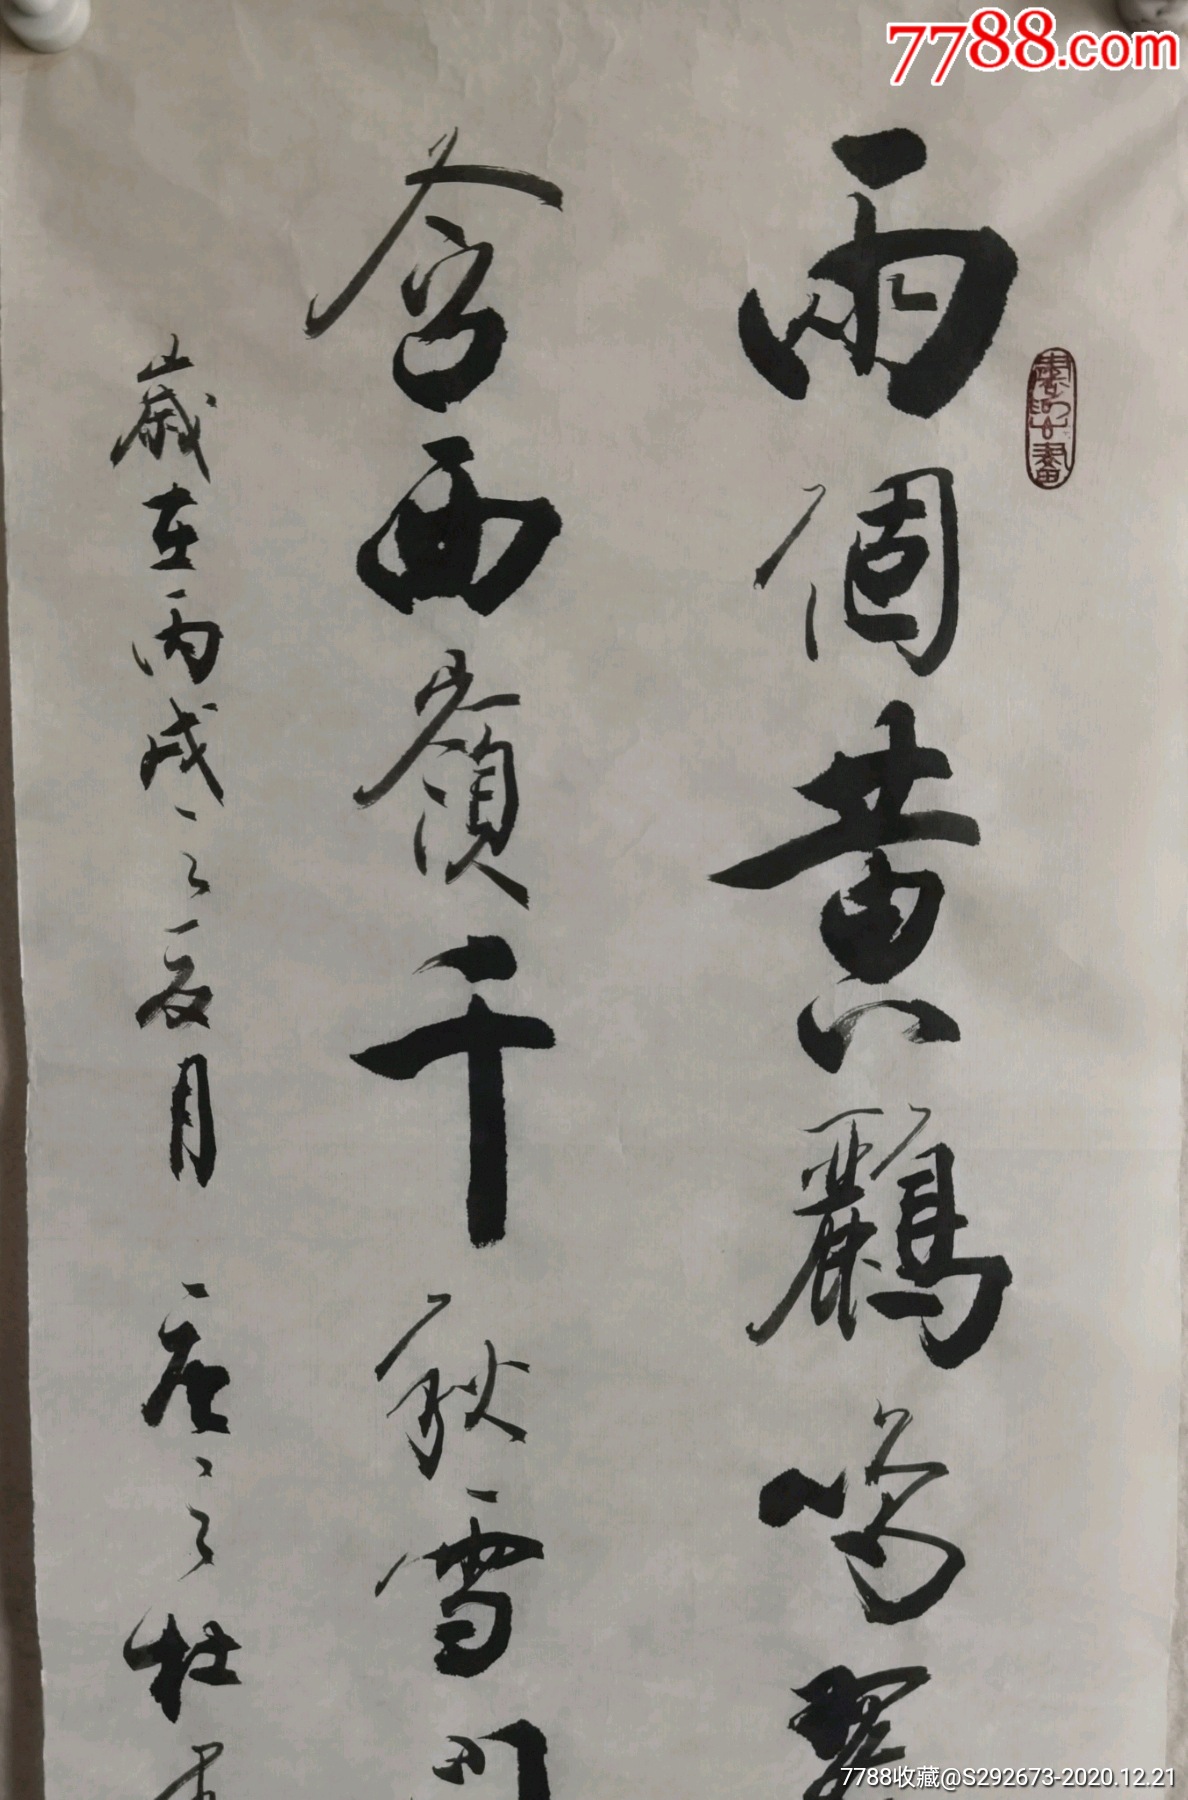 7788.com
兩個黄鸝鳴翠
含西嶺千秋雪門
歲在丙戌之夏月 唐之杜甫
7788收藏@S292673-2020.12.21